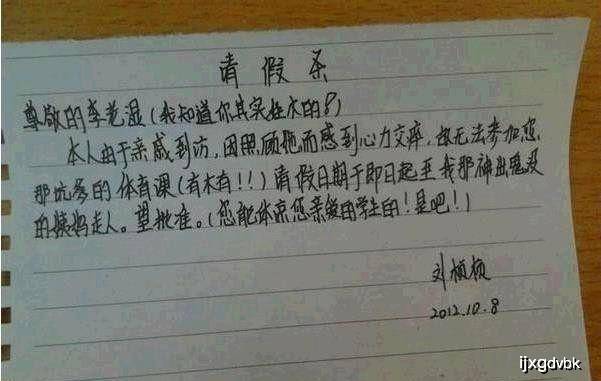 请假条
尊敬的李艺湿(我知道你其实姓木的!)
本人由于亲戚到访,因照顾他而感到心力交瘁,故无法参加您
那坑爹的体育课(有木有!!)请假日期于即日起至我那神出鬼没
的姨妈走人。望批准。(您能体谅您亲爱的学生的!是吧!)
刘桢桢
2012.10.8
ijxgdvbk